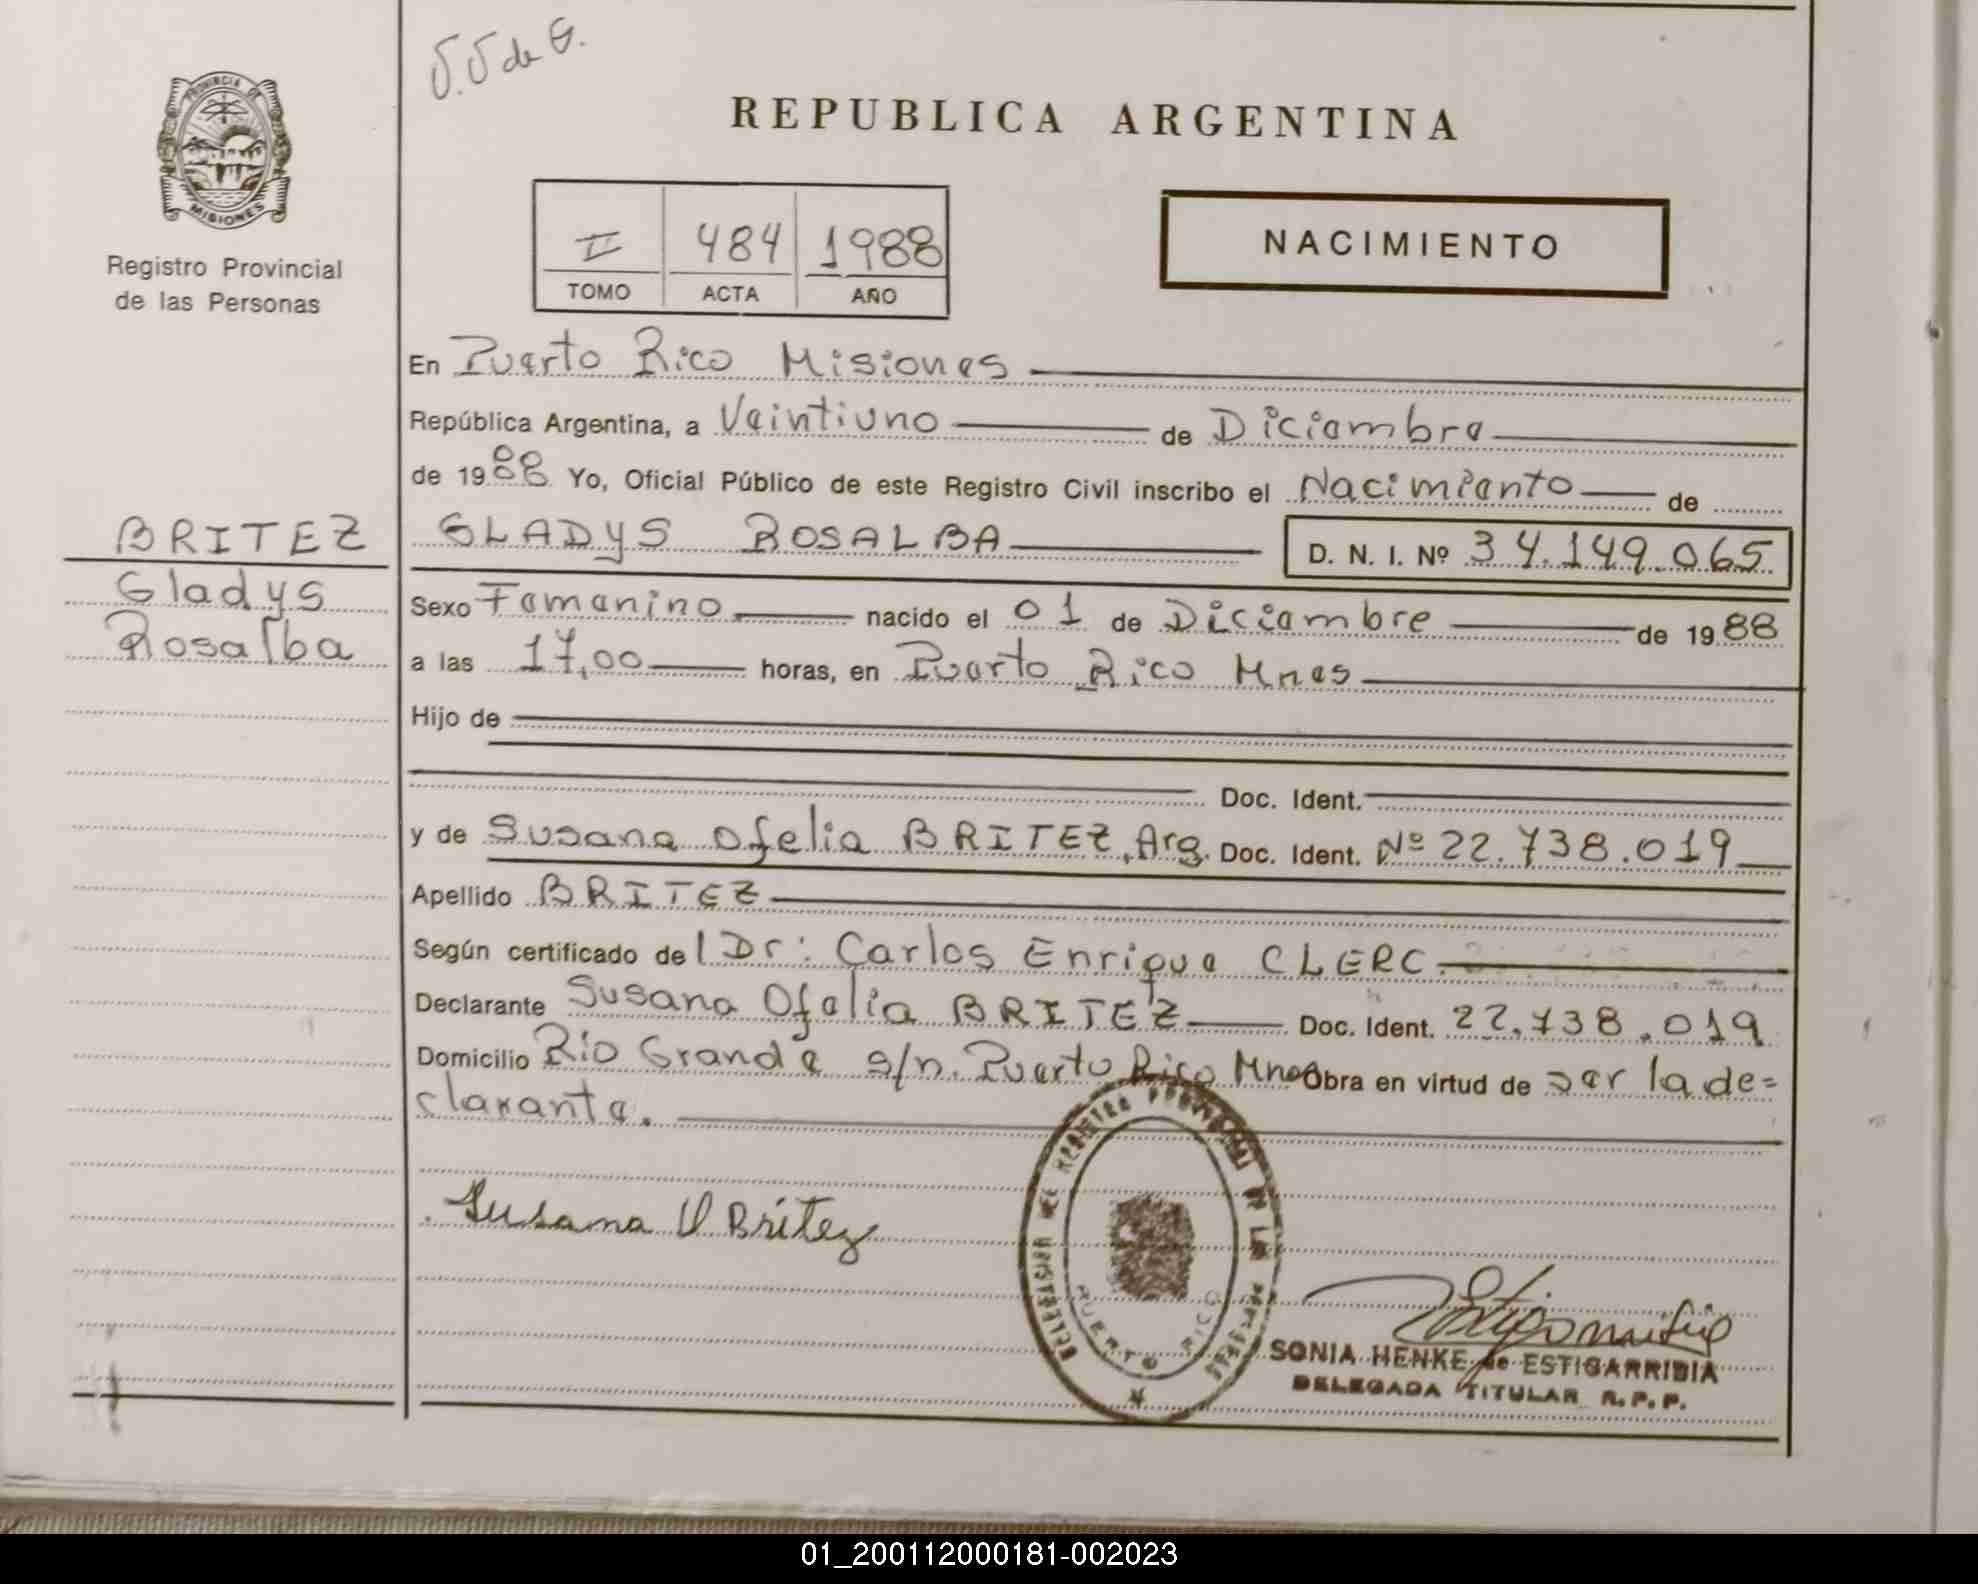 PROVINCIA DE
MISIONES
Registro Provincial
de las Personas
BRITEZ
Gladys
Rosalba
J.J de G.
REPUBLICA ARGENTINA
II 484 1988
TOMO ACTA AÑO
NACIMIENTO
En Puerto Rico Misiones
República Argentina, a Veintiuno de Diciembre
de 1988 Yo, Oficial Público de este Registro Civil inscribo el Nacimiento de
GLADYS ROSALBA D. N. I. Nº 34.149.065
Sexo Femenino nacido el 01 de Diciembre de 1988
a las 17,00 horas, en Puerto Rico Mnes
Hijo de
Doc. Ident.
y de Susana Ofelia BRITEZ, Arg. Doc. Ident. Nº 22.738.019
Apellido BRITEZ
Según certificado de l Dr: Carlos Enrique CLERC.
Declarante Susana Ofelia BRITEZ Doc. Ident. 22.738.019
Domicilio Río Grande s/n. Puerto Rico Mnes Obra en virtud de ser la de=
clarante.
Susana O Britez
DELEGACION DEL REGISTRO PROVINCIAL DE LAS PERSONAS
PUERTO RICO
SONIA HENKE de ESTIGARRIBIA
DELEGADA TITULAR R. P. P.
01_200112000181-002023